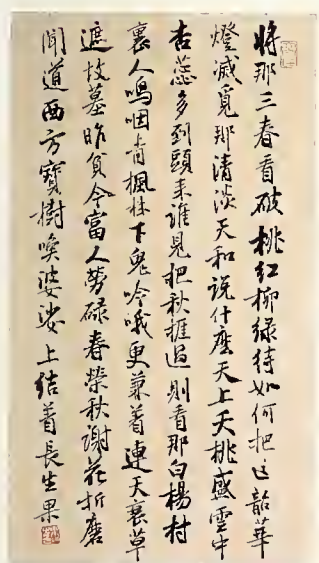 將那三春看破桃紅柳綠待如何把这韶華
燈滅覓那清淡天和說什麼天上夭桃盛雲中
杏蕊多到頭來誰見把秋捱過則看那白楊村
裏人嗚咽青楓林下鬼吟哦更兼着連天衰草
遮坟墓昨貧今富人勞碌春榮秋謝花折磨
聞道西方寶樹喚婆娑上結着長生果